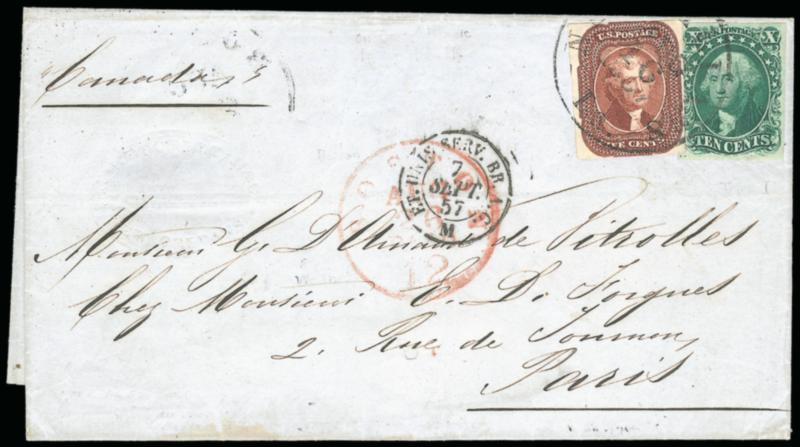 "Canada"
U.S. POSTAGE
FIVE CENTS
X U.S. POSTAGE X
TEN CENTS
ET. UNIS SERV. BR. A.C.
7
SEPT.
57
M
12
Monsieur G. D'Arnaud de Vitrolles
Chez Monsieur E. D. Forgues
2. Rue de Tournon,
Paris.